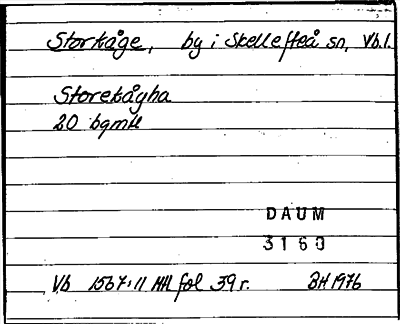 Storkåge, by i Skellefteå sn, Vb.l.
Storekågha
20 bgmh
DAUM
3160
Vb 1567:11 MH fol 39 r. BH 1976